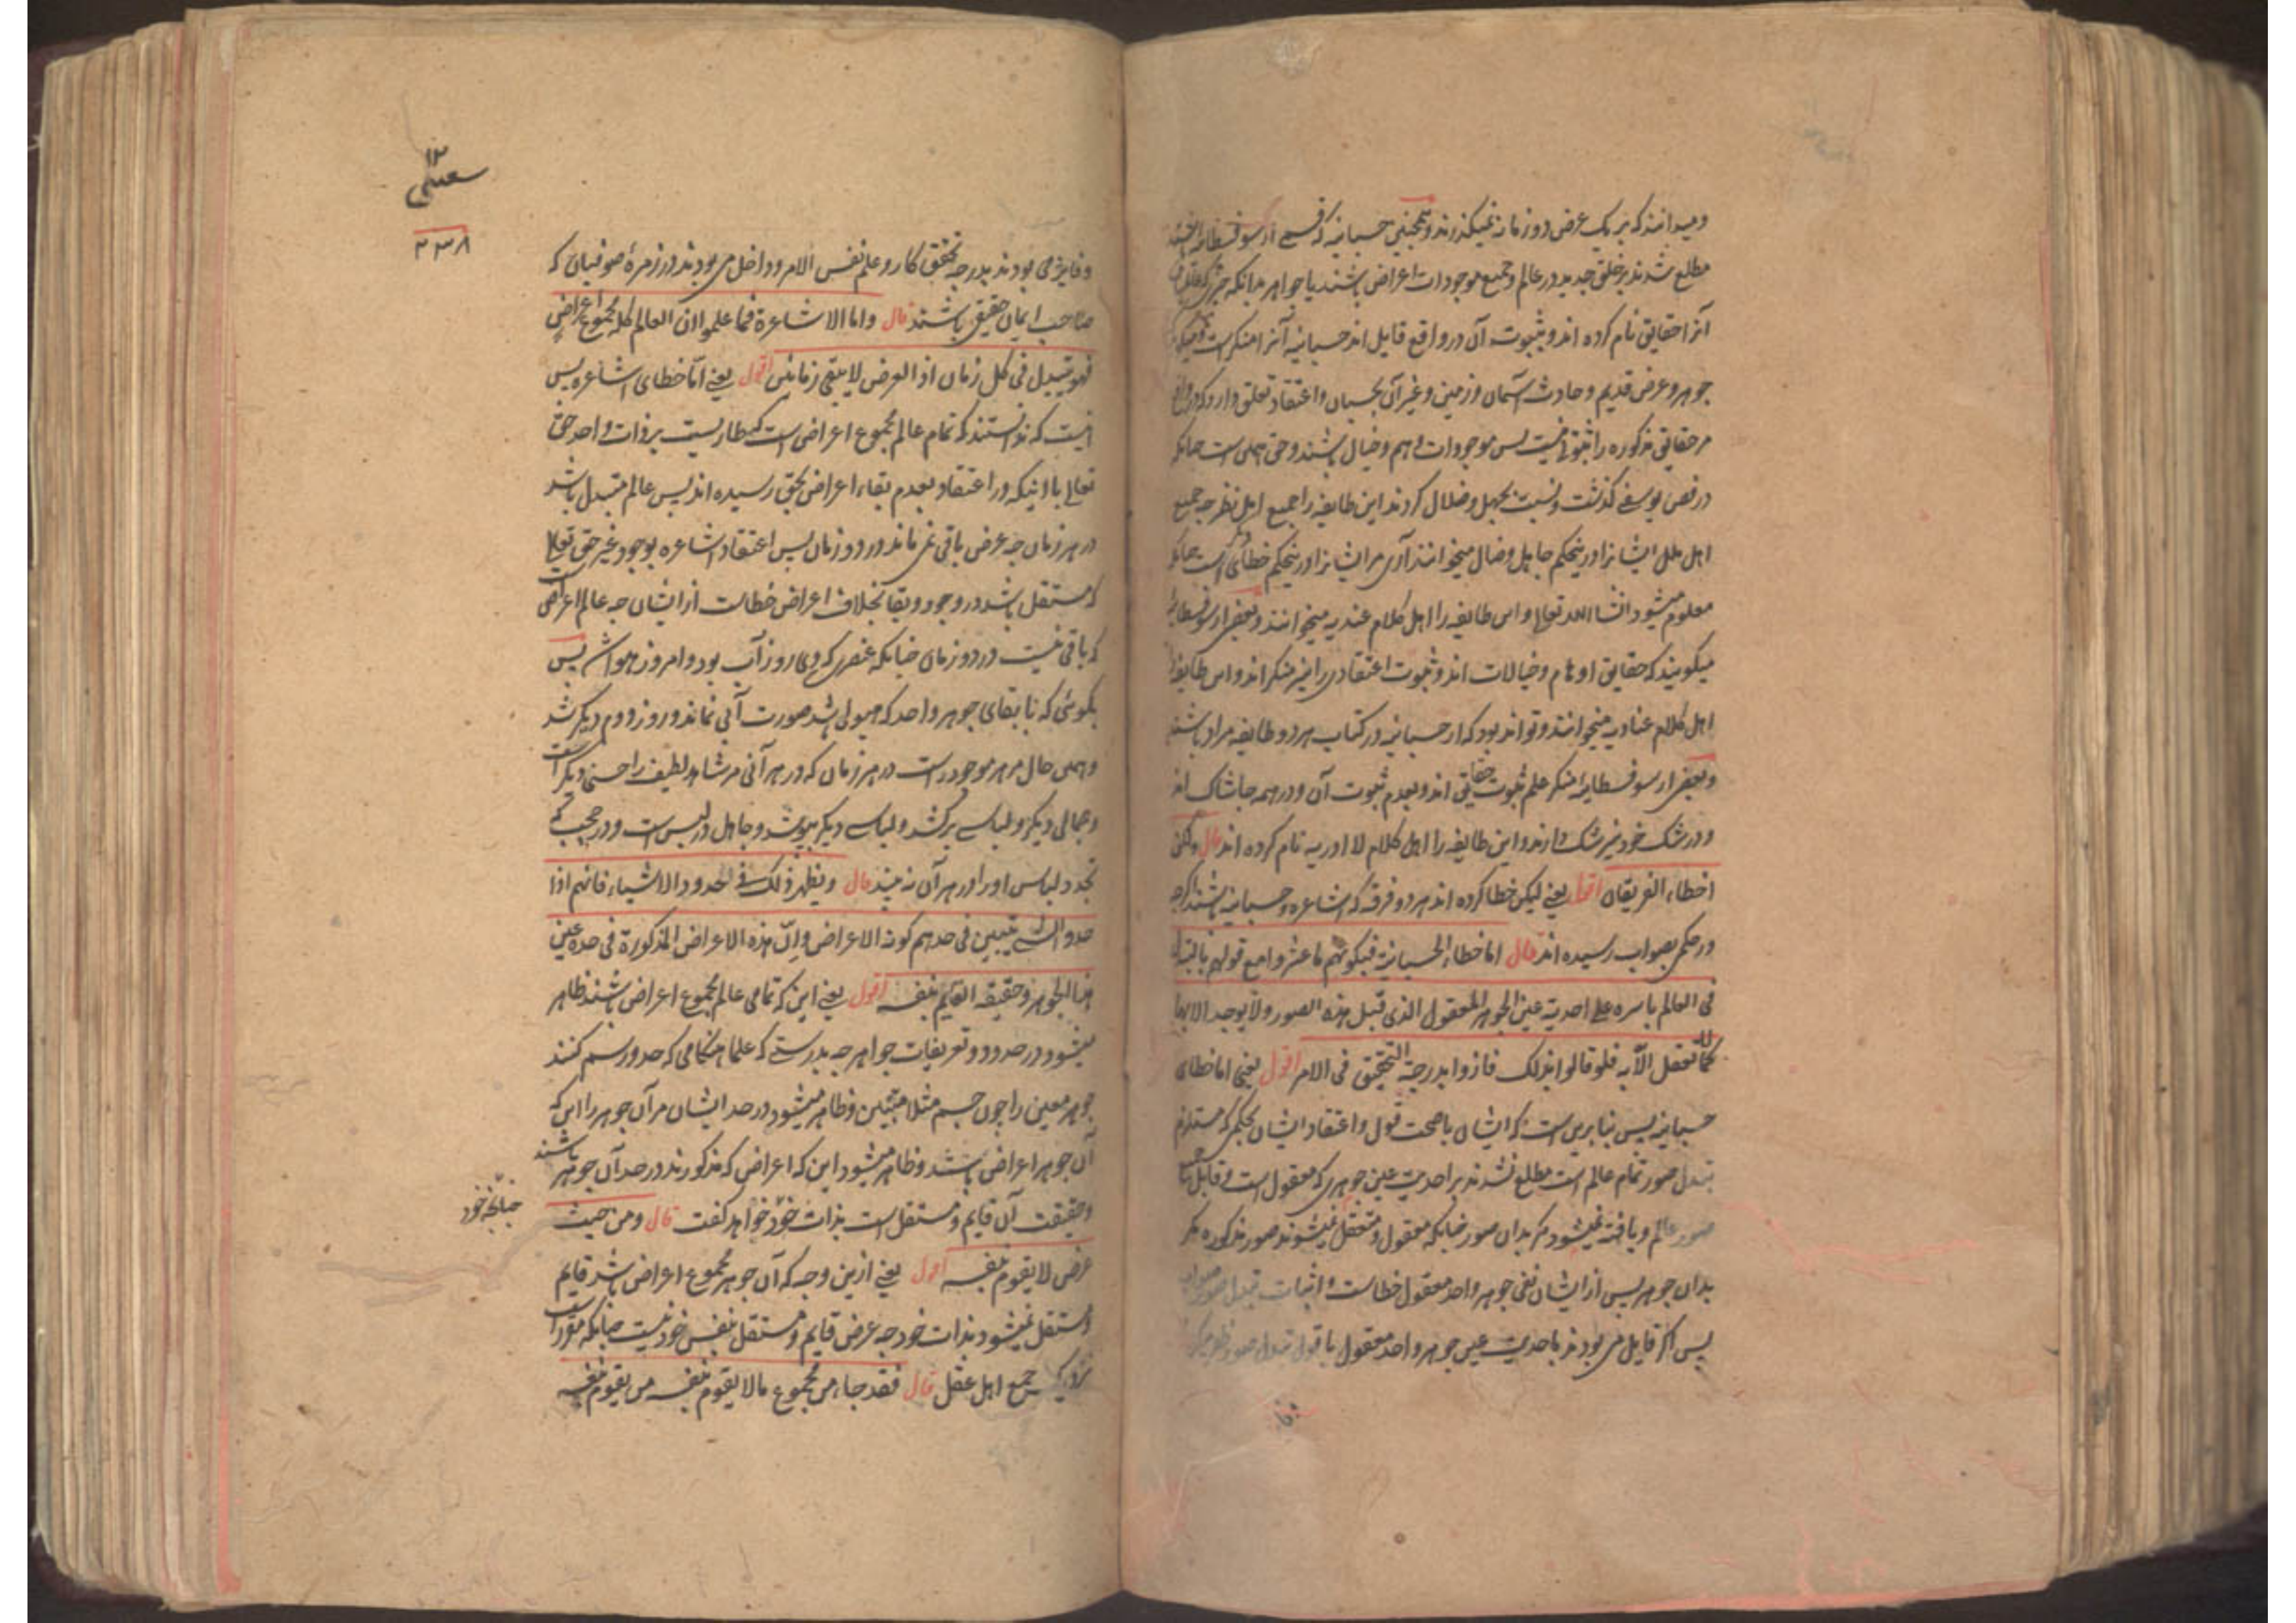 و میدانند که بر یک عرض دو زمانه نمیگذرند و همچنین حسبانیه که قسمی از سوفسطائیه
مطلع شدند بر خلق جدید در عالم و جمیع موجودات اعراض باشند یا جواهر بدانکه
آنرا حقایق نام کرده اند و بثبوت آن در واقع قایل اند حسبانیه آنرا منکرست
جوهر و عرض قدیم و حادث آسمان و زمین و غیر آن بحسبان و اعتقاد تعلق دارد که در واقع
مر حقایق مذکوره را ثبوتی نیست پس موجودات وهم و خیال باشند و حق همین است چنانکه
در فص یوسفی گذشت و نسبت بجهل و ضلال کردند این طایفه را جمیع اهل نظر چه جمیع
اهل ملل ایشانرا درینحکم جاهل و ضال میخوانند آری مر ایشانرا درینحکم خطای دیگر است چنانکه
معلوم میشود انشاء الله تعالی و این طایفه را اهل کلام عندیه میخوانند و بعضی از سوفسطائیه
میگویند که حقایق اوهام و خیالات اند و ثبوت اعتقادی را نیز منکر اند و این طایفه را
اهل کلام عنادیه میخوانند و تواند بود که از حسبانیه در کتاب هر دو طایفه مراد باشند
و بعضی از سوفسطائیه منکر علم ثبوت حقایق اند و بعدم ثبوت آن و در همه جا شاک اند
و در شک خود نیز شک دارند و این طایفه را اهل کلام لاادریه نام کرده اند قال ولکن
اخطاء الفریقان اقول یعنی لیکن خطا کرده اند هر دو فرقه که اشاعره و حسبانیه باشند اگرچه
در حکمی بصواب رسیده اند قال اما خطاء الحسبانیة فبکونهم ما عثروا مع قولهم بالتبدل
فی العالم باسره علی احدیة عین الجوهر المعقول الذی قبل هذه الصور ولا یوجد الا بها
کما لا تعقل الا به فلو قالوا بذلک فازوا بدرجة التحقیق فی الامر اقول یعنی اما خطای
حسبانیه پس بنا برین است که ایشان با صحت قول و اعتقاد ایشان بحکمی که مستلزم
تبدل صور تمام عالم است مطلع نشدند بر احدیت عین جوهری که معقول است و قابل جمیع
صور عالم و یافته نمیشود مگر بدان صور چنانکه معقول و متعقل نمیشوند صور مذکوره مگر
بدان جوهر پس از ایشان نفی جوهر واحد معقول خطاست و اثبات تبدل صور صواب
پس اگر قایل می بودند باحدیت عین جوهر واحد معقول با قول تبدل صور
سعتی ۱۲
۲۳۸
و فایز می بودند بدرجه تحقق کار و علم نفس الامر و داخل می بودند در زمرۀ صوفیان که
صاحب ایمان حقیقی باشند قال و اما الاشاعرة فما علموا ان العالم کله مجموع اعراض
فهو یتبدل فی کل زمان اذ العرض لا یبقی زمانین اقول یعنی اما خطای اشاعره پس
اینست که ندانستند که تمام عالم مجموع اعراض است که طاریست بر ذات واحد حق
تعالی با آنکه در اعتقاد بعدم بقاء اعراض بحق رسیده اند پس عالم متبدل باشد
در هر زمان چه عرض باقی نمی ماند در دو زمان پس اعتقاد اشاعره بوجود غیر حق تعالی
که مستقل باشد در وجود و بقا بخلاف اعراض خطاست از ایشان چه عالم اعراضی است
که باقی نیست در دو زمان چنانکه عنصری که دی روز آب بود و امروز هواشد پس
بگوئی که با بقای جوهر واحد که هیولی باشد صورت آبی نماند و روز دوم دیگر شد
و همین حال مر هر موجود راست در هر زمان که در هر آنی مر شاهد لطیف را حسنی دیگر است
و جمالی دیگر و لباسی برکشد و لباسی دیگر بپوشد و جاهل در لبس است و در حجب که
تجدد لباس او را در هر آن نه بیند قال و یظهر ذلک فی الحدود الاشیاء فانهم اذا
حدوا الشیء یتبین فی حدهم کونه الاعراض و ان هذه الاعراض المذکورة فی حده عین
هذا الجوهر و حقیقة القایم بنفسه اقول یعنی این که تمامی عالم مجموع اعراض باشند ظاهر
میشود در حدود و تعریفات جواهر چه بدرستی که علما هنگامی که حد و رسم کنند
جوهر معین را چون جسم مثلا متبین و ظاهر میشود در حد ایشان مر آن جوهر را این که
آن جوهر اعراض باشند و ظاهر میشود این که اعراضی که مذکورند در حد آن جوهر باشند
و حقیقت آن قایم و مستقل است بذات خود خواهد گفت قال و من حیث
عرض لا یقوم بنفسه اقول یعنی ازین وجه که آن جوهر مجموع اعراض باشد قایم
و مستقل نمیشود بذات خود چه عرض قایم و مستقل بنفس خود نیست چنانکه مقرر است
نزدیک جمیع اهل عقل قال فقد جاء من مجموع ما لا یقوم بنفسه من یقوم بنفسه